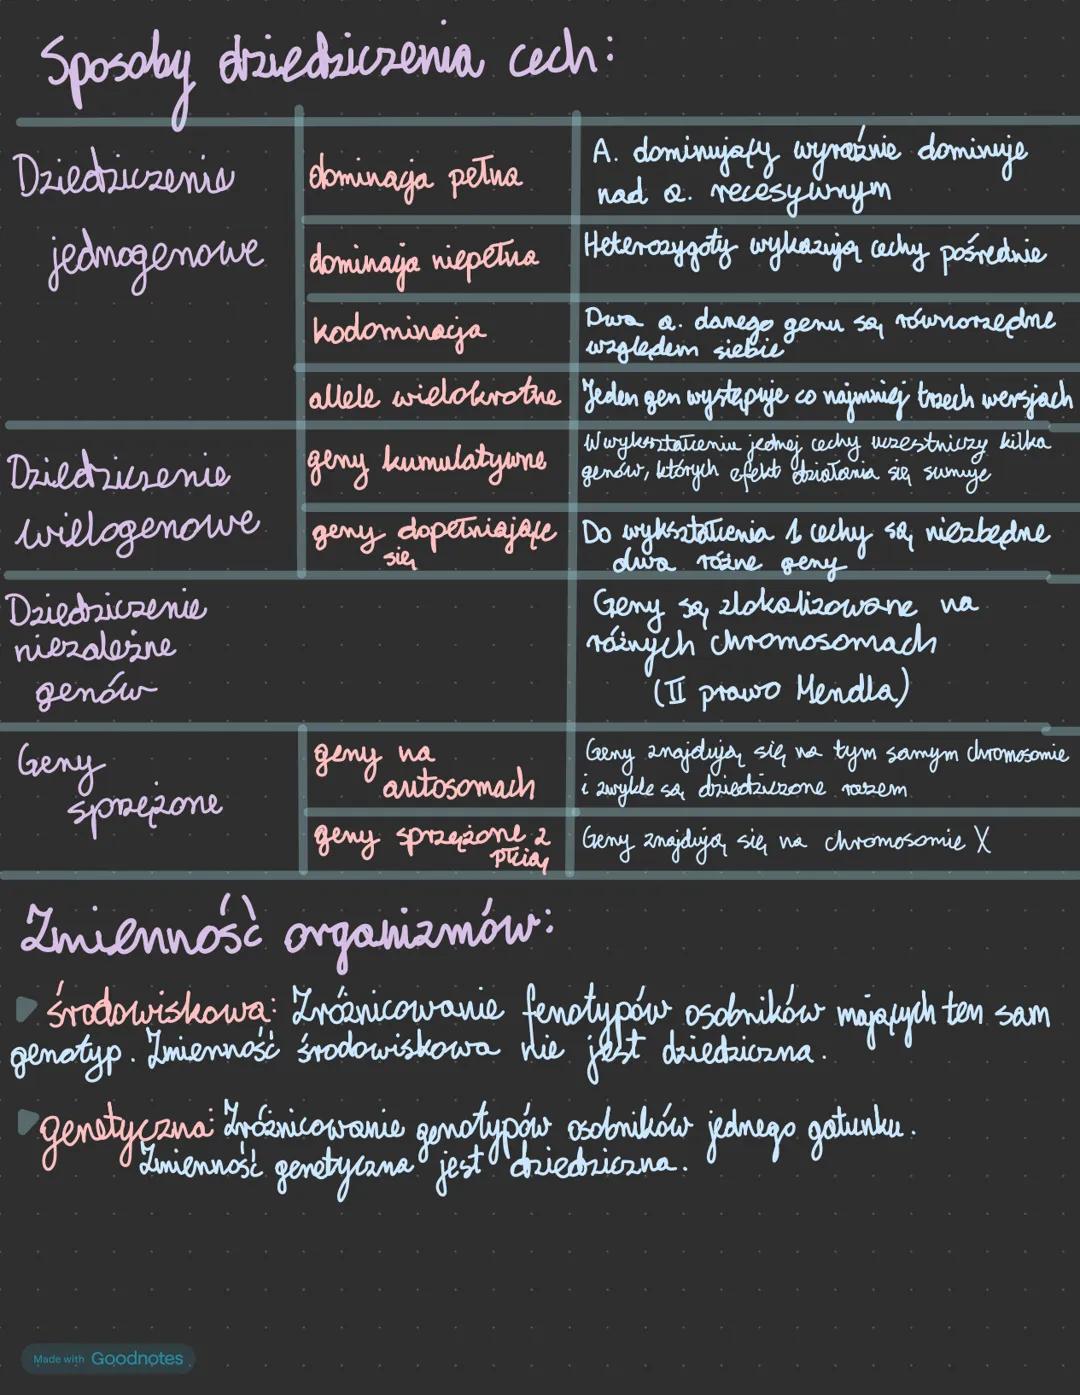 Sposoby dziedziczenia cech:
Dziedziczenie
jednogenowe
dominacja pełna
A. dominujący wyraźnie dominuje
nad a. recesywnym
dominacja niepełna
Heterozygoty wykazują cechy pośrednie
kodominacja
Dwa a. danego genu są równorzędne
względem siebie
allele wielokrotne
Jeden gen występuje co najmniej trzech wersjach
Dziedziczenie
wielogenowe
geny kumulatywne
W wykształceniu jednej cechy uczestniczy kilka
genów, których efekt działania się sumuje
geny dopełniające
się
Do wykształcenia 1 cechy są niezbędne
dwa różne geny
Dziedziczenie
niezależne
genów
Geny są zlokalizowane na
różnych chromosomach
(II prawo Mendla)
Geny
sprzężone
geny na
autosomach
Geny znajdują się na tym samym chromosomie
i zwykle są dziedziczone razem
geny sprzężone z
płcią
Geny znajdują się na chromosomie X
Zmienność organizmów:
środowiskowa: Zróżnicowanie fenotypów osobników mających ten sam
genotyp. Zmienność środowiskowa nie jest dziedziczna.
genetyczna: Zróżnicowanie genotypów osobników jednego gatunku.
Zmienność genetyczna jest dziedziczna.
Made with Goodnotes